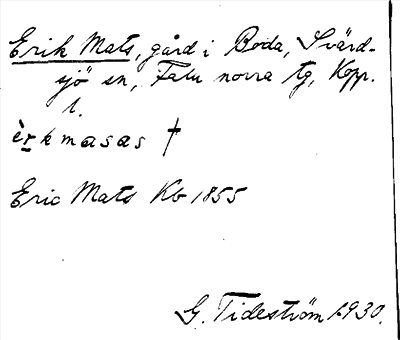 Erik Mats, gård i Boda, Svärd-
sjö sn, Falu norra tg, Kopp.
l.
èrkmasas †
Eric Mats Kb 1855
G. Tideström 1930.